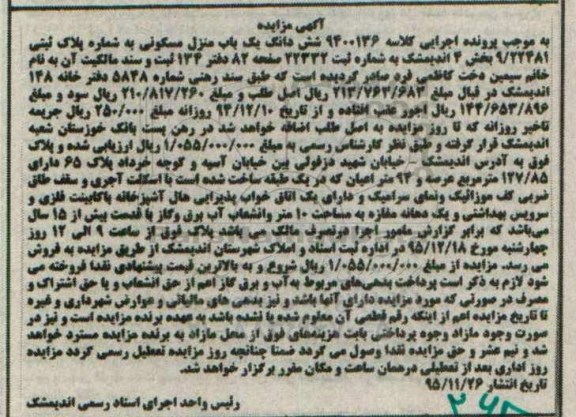 آگهی مزایده
به موجب پرونده اجرایی کلاسه ۹۴۰۰۱۳۶ شش دانگ یک باب منزل مسکونی به شماره پلاک ثبتی
۹/۲۲۴۸۱ بخش ۴ اندیمشک به شماره ثبت ۲۲۳۳۲ صفحه ۸۲ دفتر ۱۳۴ ثبت و سند مالکیت آن به نام
خانم سیمین دخت کاظمی فرد صادر گردیده است که طبق سند رهنی شماره ۵۸۴۸ دفتر خانه ۱۴۸
اندیمشک در قبال مبلغ ۲۱۳/۷۶۳/۶۸۳ ریال اصل طلب و مبلغ ۲۱۰/۸۱۷/۲۶۰ ریال سود و مبلغ
۱۴۴/۶۵۳/۸۹۶ ریال اجور عقب افتاده و از تاریخ ۹۴/۱۲/۱۰ روزانه مبلغ ۲۵۰/۰۰۰ ریال جریمه
تاخیر روزانه که تا روز مزایده به اصل طلب اضافه خواهد شد در رهن پست بانک خوزستان شعبه
اندیمشک قرار گرفته و طبق نظر کارشناس رسمی به مبلغ ۱/۰۵۵/۰۰۰/۰۰۰ ریال ارزیابی شده و پلاک
فوق به آدرس اندیمشک _ خیابان شهید دزفولی بین خیابان آسیه و کوچه خرداد پلاک ۶۵ دارای
۱۲۷/۸۵ مترمربع عرصه و ۹۲ متر اعیان که در یک طبقه ساخته شده است با اسکلت آجری و سقف طاق
ضربی کف موزائیک ونمای سرامیک و دارای یک اتاق خواب پذیرایی هال آشپزخانه باکابینت فلزی و
سرویس بهداشتی و یک دهانه مغازه به مساحت ۱۰ متر وانشعاب آب برق وگاز با قدمت بیش از ۱۵ سال
میباشد که برابر گزارش مامور اجرا درتصرف مالک می باشد پلاک فوق از ساعت ۹ الی ۱۲ روز
چهارشنبه مورخ ۹۵/۱۲/۱۸ در اداره ثبت اسناد و املاک شهرستان اندیمشک از طریق مزایده به فروش
می رسد. مزایده از مبلغ ۱/۰۵۵/۰۰۰/۰۰۰ ریال شروع و به بالاترین قیمت پیشنهادی نقدا فروخته می
شود لازم به ذکر است پرداخت بدهی‌های مربوط به‌آب و برق گاز اعم از حق انشعاب و یا حق اشتراک و
مصرف در صورتی که مورد مزایده دارای آنها باشد و نیز بدهی های مالیاتی و عوارض شهرداری و غیره
تا تاریخ مزایده اعم از اینکه رقم قطعی آن معلوم شده یا نشده باشد به عهده برنده مزایده است و نیز در
صورت وجود مازاد وجوه پرداختی بابت هزینه‌های فوق از محل مازاد به برنده مزایده مسترد خواهد
شد و نیم عشر و حق مزایده نقدا وصول می گردد ضمنا چنانچه روز مزایده تعطیل رسمی گردد مزایده
روز اداری بعد از تعطیلی درهمان ساعت و مکان مقرر برگزار خواهد شد.
تاریخ انتشار ۹۵/۱۱/۲۶
رئیس واحد اجرای اسناد رسمی اندیمشک